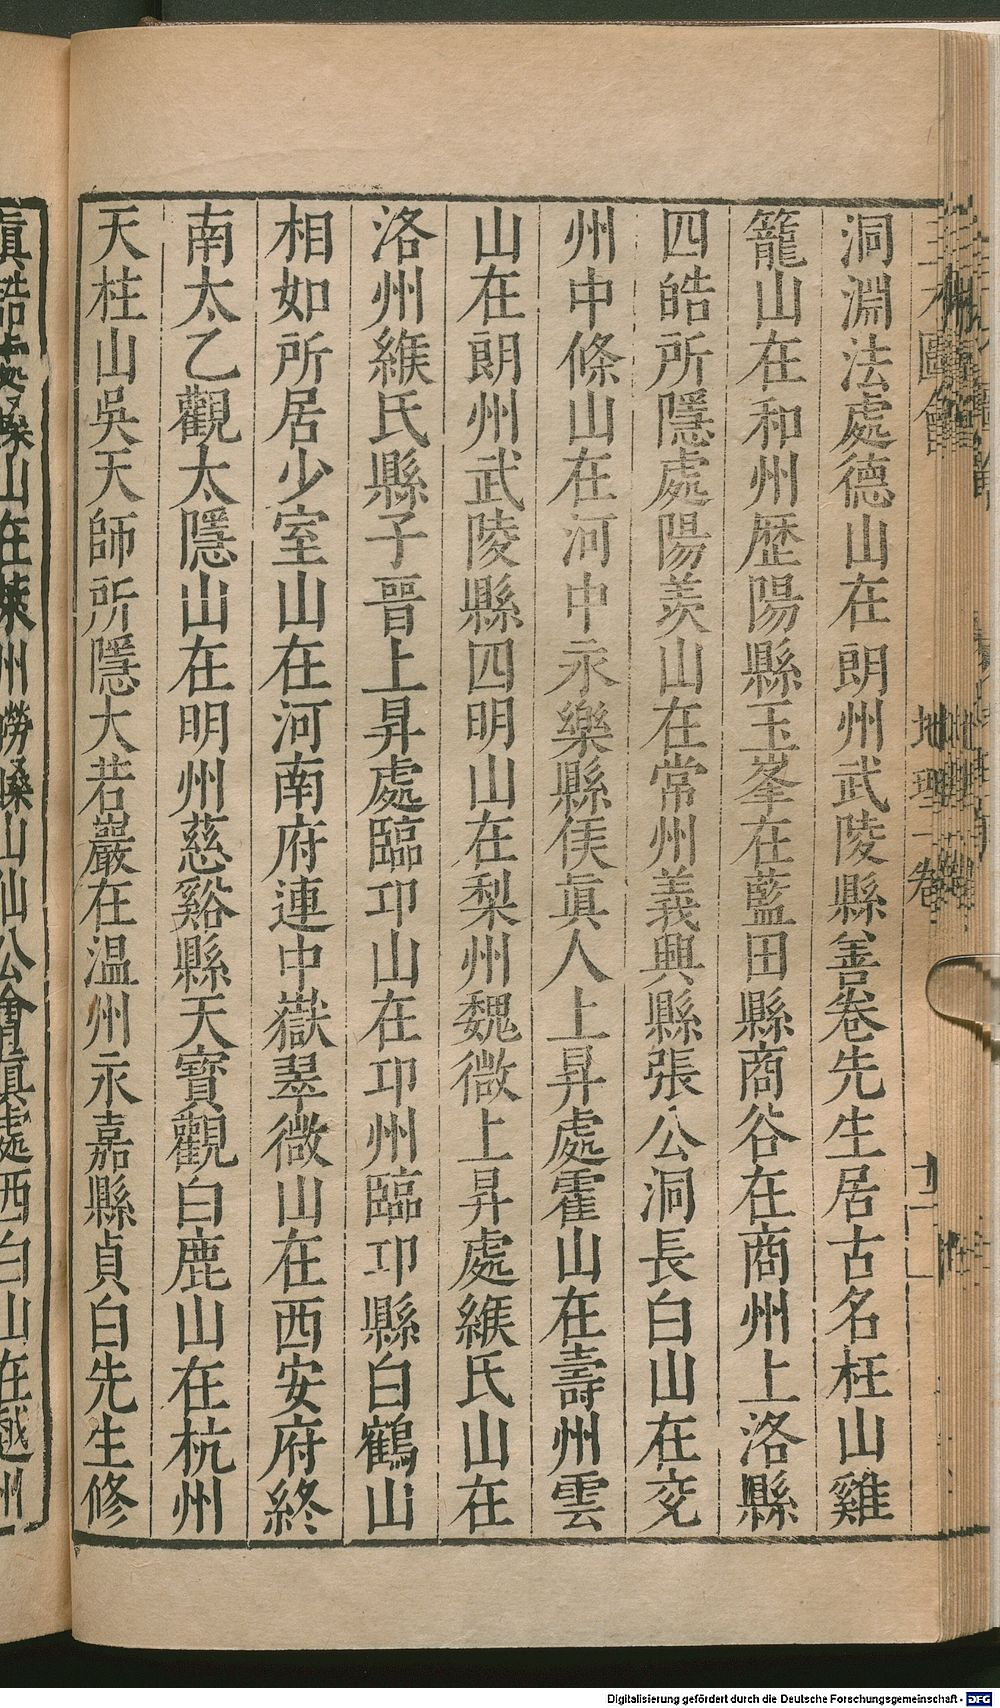 三才圖會 地理一卷
洞淵法處德山在朗州武陵縣善卷先生居古名枉山雞
籠山在和州歷陽縣玉峯在藍田縣商谷在商州上洛縣
四皓所隱處陽羨山在常州義興縣張公洞長白山在兗
州中條山在河中永樂縣侯眞人上昇處霍山在壽州雲
山在朗州武陵縣四明山在梨州魏微上昇處緱氏山在
洛州緱氏縣子晉上昇處臨邛山在邛州臨邛縣白鶴山
相如所居少室山在河南府連中嶽翠微山在西安府終
南太乙觀太隱山在明州慈谿縣天寶觀白鹿山在杭州
天柱山吳天師所隱大若巖在温州永嘉縣貞白先生修
眞誥處 山在萊州嶗 山仙公會眞處西白山在越州
Digitalisierung gefördert durch die Deutsche Forschungsgemeinschaft - DFG